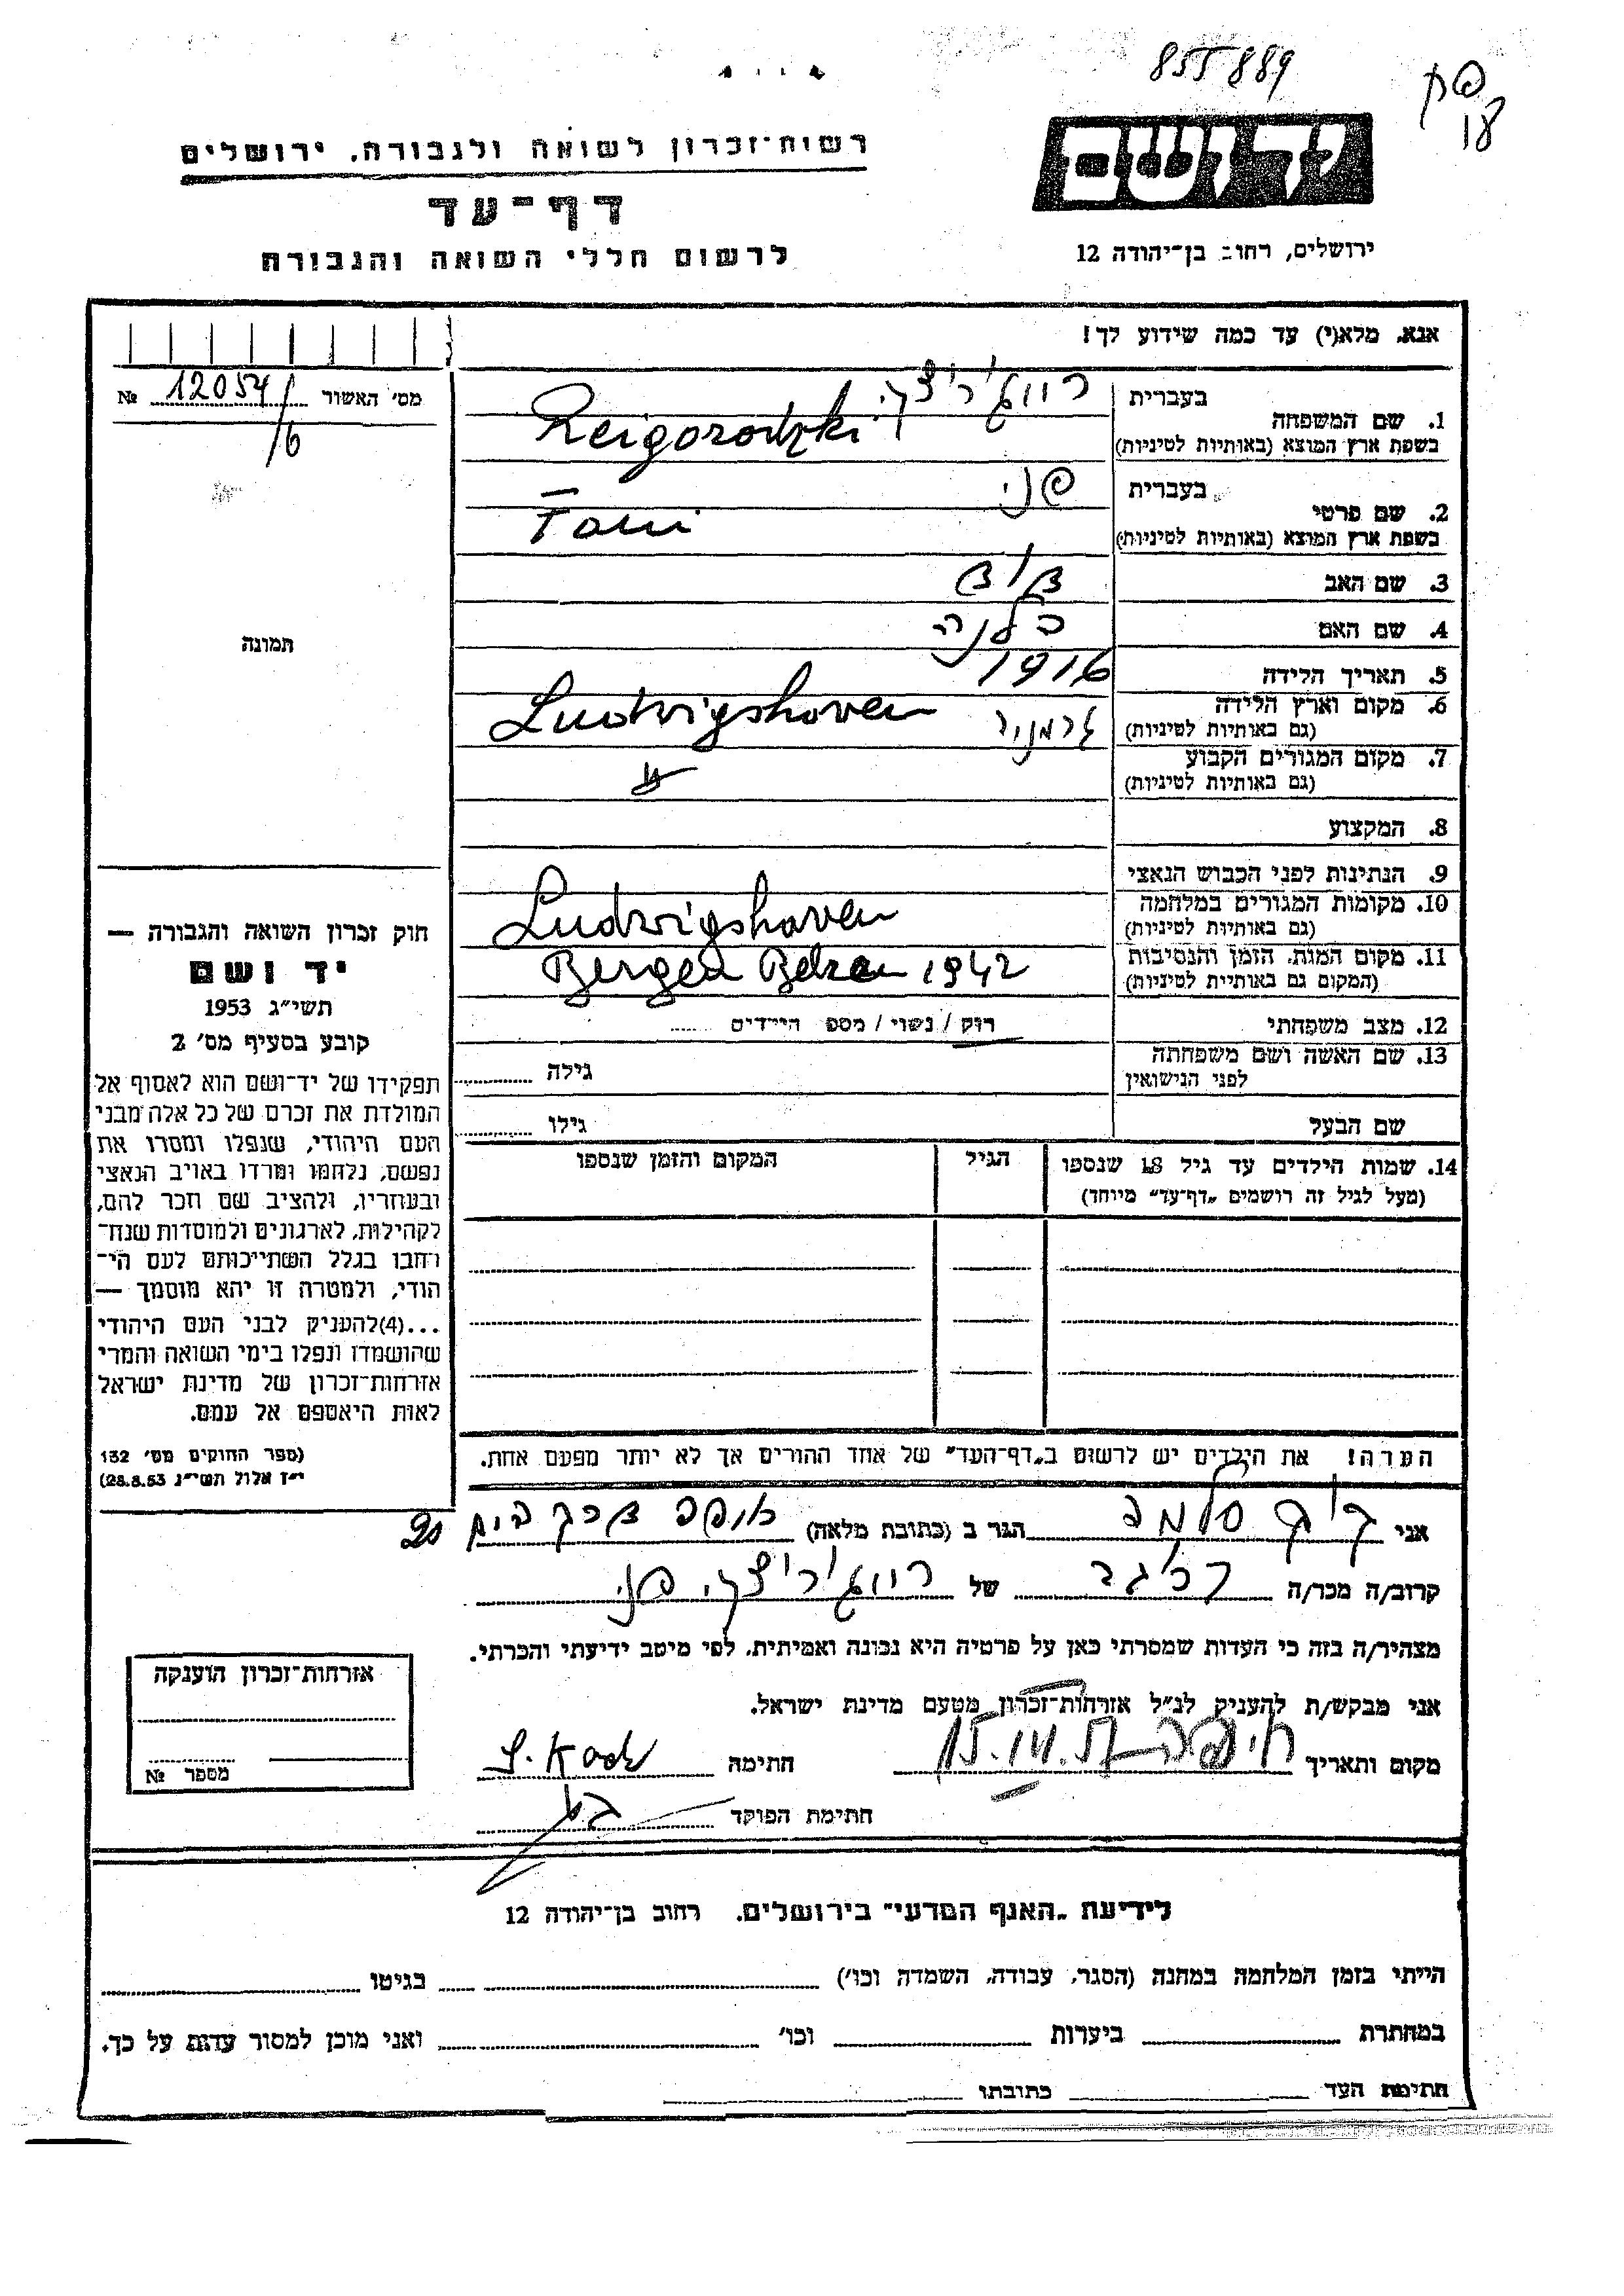 855889
יד ושם
רשות־זכרון לשואה ולגבורה, ירושלים
דף־עד
לרשום חללי השואה והגבורה
ירושלים, רחוב בן־יהודה 12
אנא, מלא(י) עד כמה שידוע לך!
מס׳ האשור 12054/6 №
תמונה
1. שם המשפחה
בעברית
בשפת ארץ המוצא (באותיות לטיניות)
Reigorodzki
2. שם פרטי
בעברית פני
בשפת ארץ המוצא (באותיות לטיניות)
Fani
3. שם האב
4. שם האם
5. תאריך הלידה 1916
6. מקום וארץ הלידה
(גם באותיות לטיניות)
Ludwigshoven גרמניה
7. מקום המגורים הקבוע
(גם באותיות לטיניות)
8. המקצוע
9. הנתינות לפני הכבוש הנאצי
10. מקומות המגורים במלחמה
(גם באותיות לטיניות)
Ludwigshoven
11. מקום המות, הזמן והנסיבות
(המקום גם באותיות לטיניות)
Bergen Belsen 1942
12. מצב משפחתי
רוק / נשוי / מספ הילדים
13. שם האשה ושם משפחתה
לפני הנישואין
גילה
שם הבעל
גילו
14. שמות הילדים עד גיל 18 שנספו
(מעל לגיל זה רושמים „דף־עד״ מיוחד)
הגיל
המקום והזמן שנספו
הערה! את הילדים יש לרשום ב„דף־העד״ של אחד ההורים אך לא יותר מפעם אחת.
חוק זכרון השואה והגבורה —
יד ושם
תשי״ג 1953
קובע בסעיף מס׳ 2
תפקידו של יד־ושם הוא לאסוף אל
המולדת את זכרם של כל אלה מבני
העם היהודי, שנפלו ומסרו את
נפשם, נלחמו ומרדו באויב הנאצי
ובעוזריו, ולהציב שם וזכר להם,
לקהילות, לארגונים ולמוסדות שנח־
רחבו בגלל השתייכותם לעם הי־
הודי, ולמטרה זו יהא מוסמך —
...(4)להעניק לבני העם היהודי
שהושמדו ונפלו בימי השואה והמרי
אזרחות־זכרון של מדינת ישראל
לאות היאספם אל עמם.
(ספר החוקים מס׳ 132
י״ז אלול תשי״ג 28.8.53)
אני קוק סלמה הגר ב (כתובת מלאה) חיפה דרך הים 20
קרוב/ה מכר/ה של פני
מצהיר/ה בזה כי העדות שמסרתי כאן על פרטיה היא נכונה ואמיתית, לפי מיטב ידיעתי והכרתי.
אני מבקש/ת להעניק לנ״ל אזרחות־זכרון מטעם מדינת ישראל.
מקום ותאריך חיפה חתימה
חתימת הפוקד
אזרחות־זכרון הוענקה
מספר №
לידיעת „האגף המדעי״ בירושלים. רחוב בן־יהודה 12
הייתי בזמן המלחמה במחנה (הסגר, עבודה, השמדה וכו׳) בגיטו
במחתרת ביערות וכו׳ ואני מוכן למסור עדות על כך.
חתימת העד כתובתו